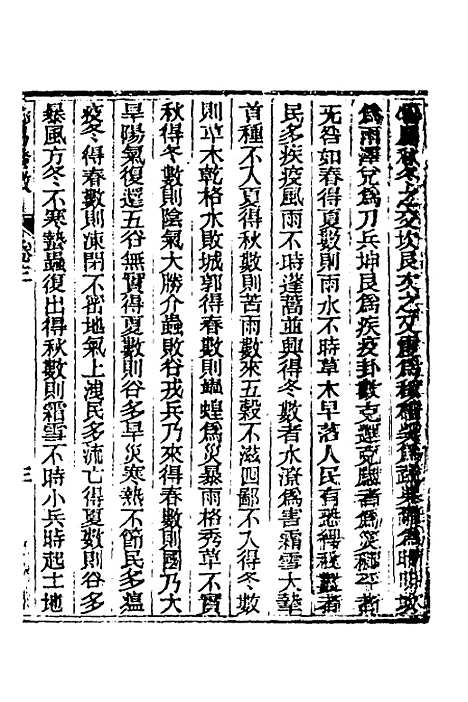 為雨澤兌為刀兵坤艮為疾疫卦數克運克應者為災極平者
无咎如春得夏數則雨水不時草木早落人民有恐得秋數者
民多疾疫風雨不時蓬蒿並興得冬數者水潦為害霜雪大摯
首種不入夏得秋數則苦雨數來五穀不滋四鄙不入得冬數
則草木乾格水敗城郭得春數則蟲蝗為災暴雨格秀草不實
秋得冬數則陰氣大勝介蟲敗谷戎兵乃來得春數則國乃大
旱陽氣復還五谷無實得夏數則谷多旱災寒熱不節民多瘟
疫冬得春數則凍閉不密地氣上洩民多流亡得夏數則谷多
暴風方冬不寒蟄蟲復出得秋數則霜雪不時小兵時起土地
三